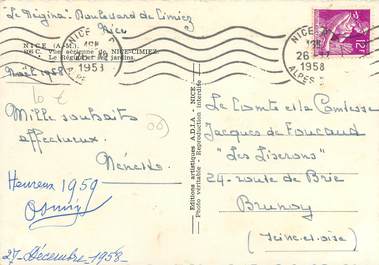 "Le Régina" Boulevard de Cimiez
Nice
NICE (A.-M.).
Vue aérienne de NICE-CIMIEZ.
Le Régina et ses jardins.
Noël 1958
Mille souhaits
affectueux
Heureux 1959
27 Décembre 1958
Editions artistiques A.D.I.A - NICE -
Photo véritable - Reproduction interdite
NICE
1958
NICE
26
1958
ALPES
Le Comte et la Comtesse
Jacques de Foucaud
"Les Liserons"
24 - route de Brie
Brunoy
(Seine-et-Oise)